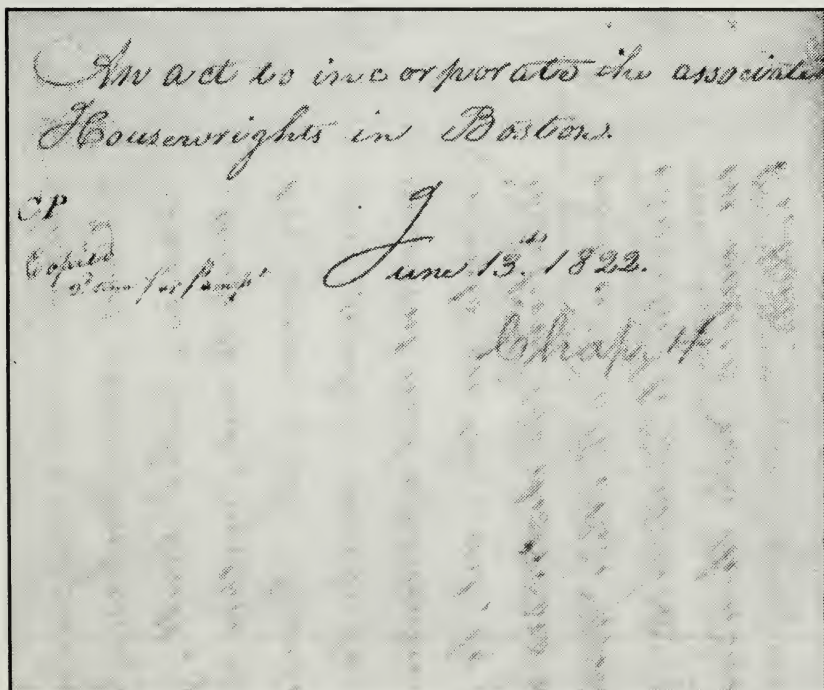 An act to incorporate the associated
Housewrights in Boston.
CP
Copied
June 13th. 1822.
Chap. 4